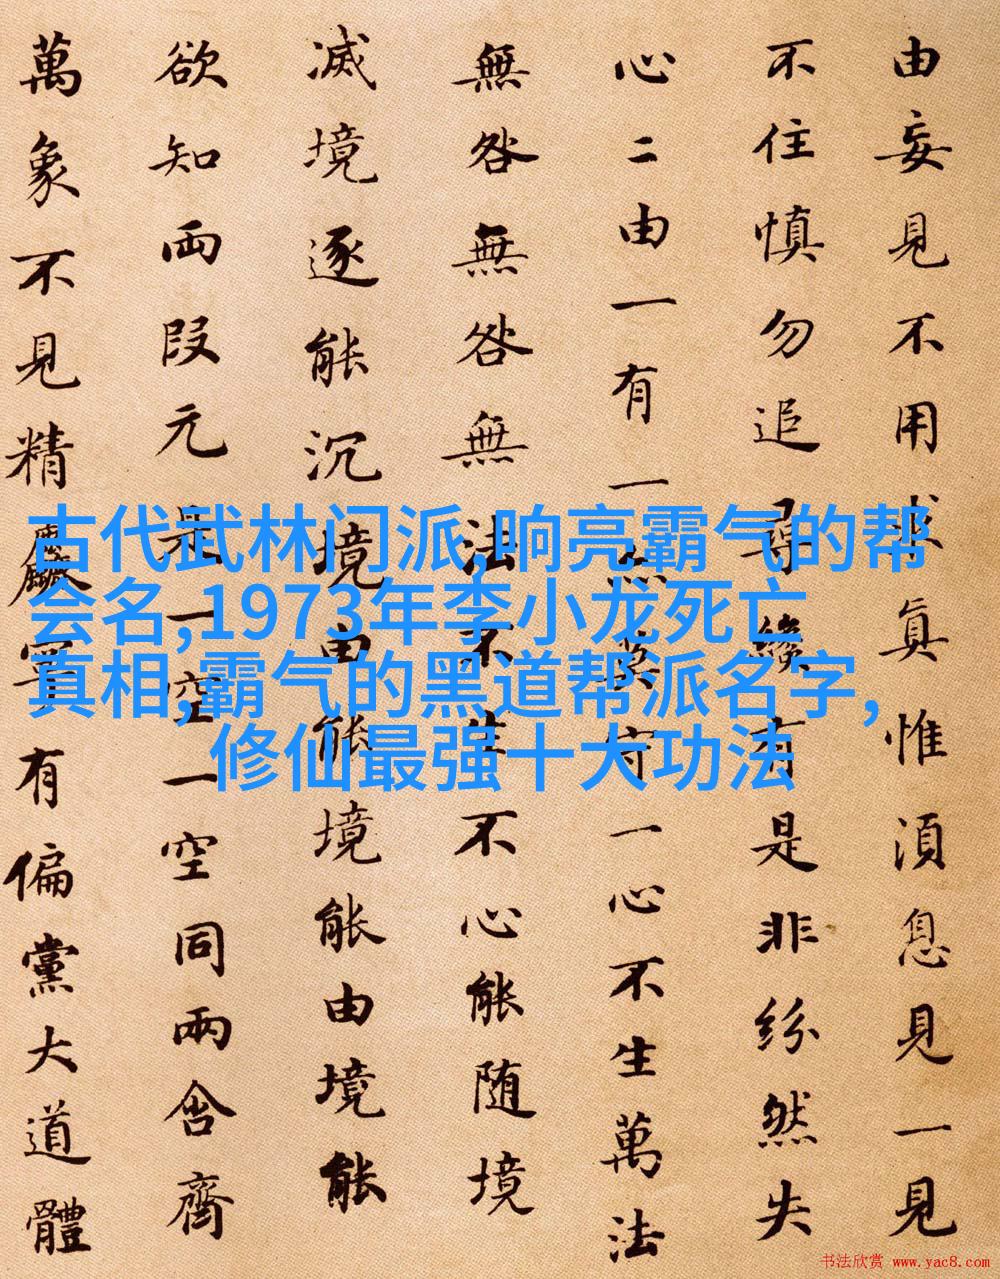 由妄見不用求真惟湏息見一見
不住慎勿追尋纔有是非紛然失
心二由一有一亦莫守一心不生萬法
無咎無咎無法不生不心能随境
滅境逐能沉境由能境能由境能
欲知两段元是一空一空同兩含齊
萬象不見精麤寧有偏黨大道體
古代武林门派,响亮霸气的帮
会名,1973年李小龙死亡
真相,霸气的黑道帮派名字,
修仙最强十大功法
书法欣赏 www.yac8.com